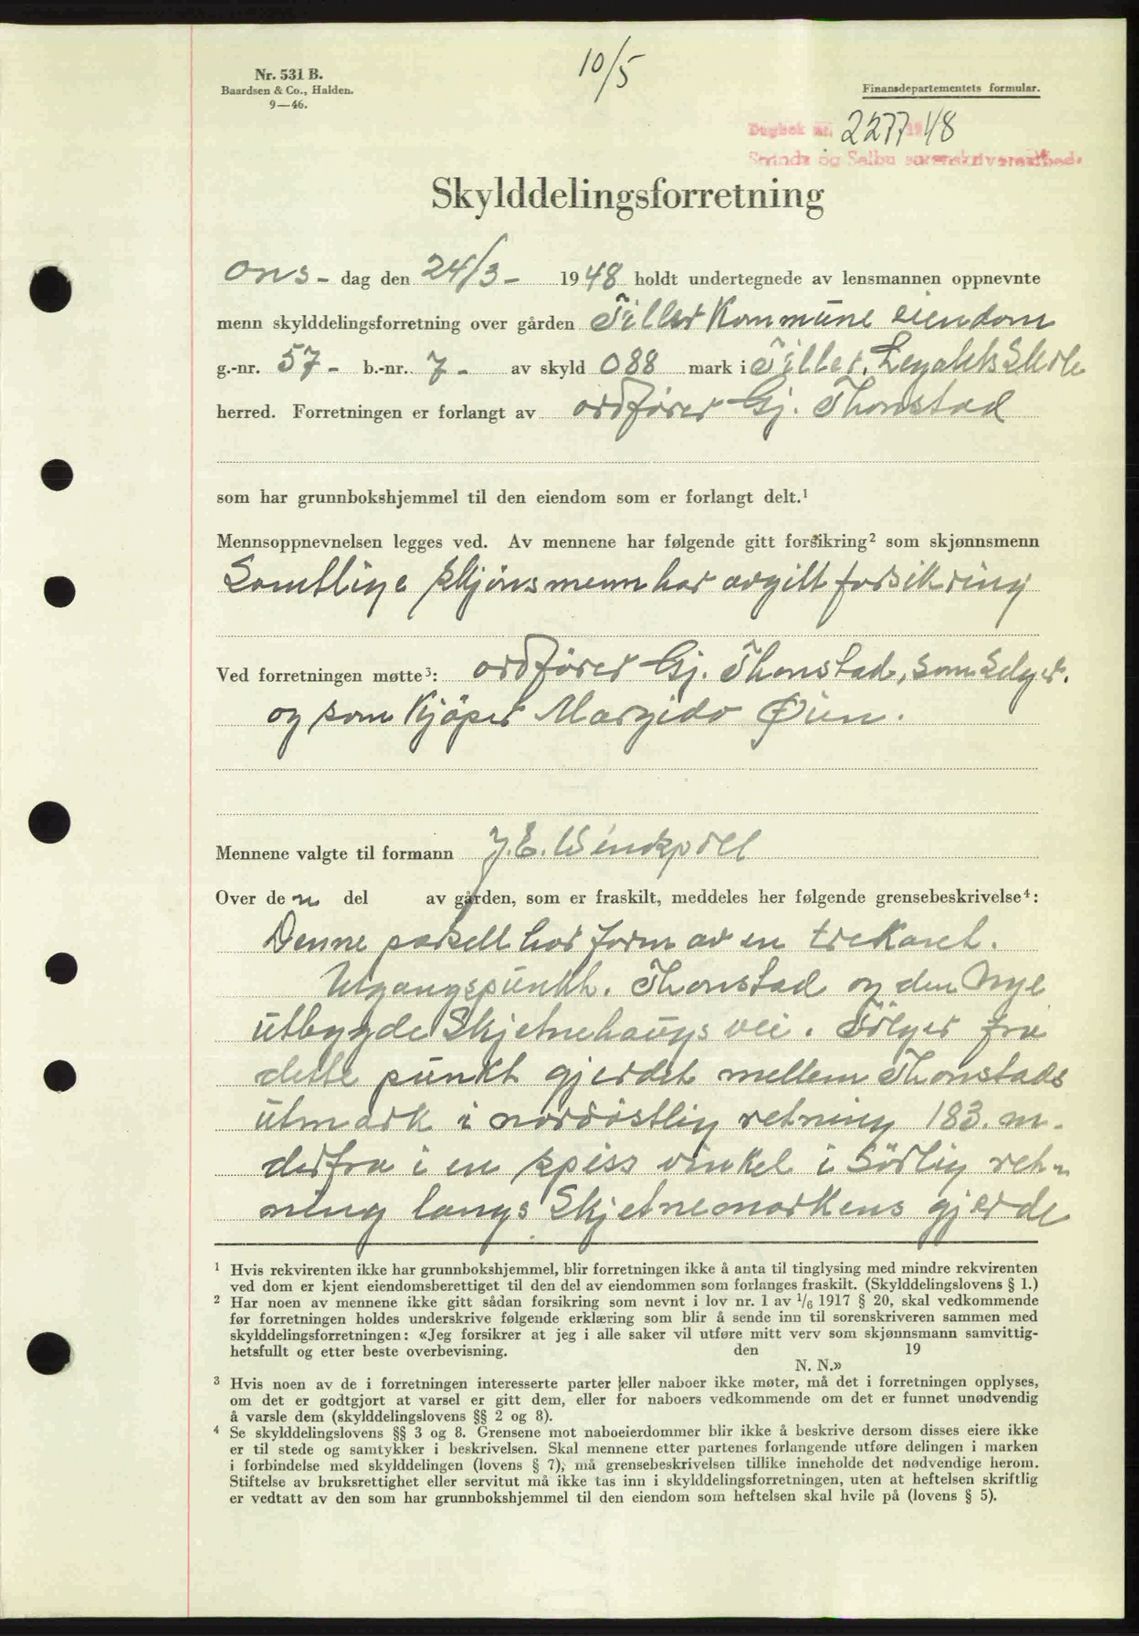 10/5
Nr. 531 B.
Baardsen & Co., Halden.
9—46.
Finansdepartementets formular.
Dagbok nr. 2277 1948
Strinda og Selbu sorenskriverembede
Skylddelingsforretning
Ons- dag den 24/3- 1948 holdt undertegnede av lensmannen oppnevnte
menn skylddelingsforretning over gården Tiller Kommune eiendom
g.-nr. 57- b.-nr. 7- av skyld 088 mark i Tiller,
herred. Forretningen er forlangt av ordfører Gj. Thonstad
som har grunnbokshjemmel til den eiendom som er forlangt delt.¹
Mennsoppnevnelsen legges ved. Av mennene har følgende gitt forsikring² som skjønnsmenn
Samtlige skjønsmenn har avgitt forsikring
Ved forretningen møtte³: ordfører Gj. Thonstad, som selger.
og som Kjøper Margido Øien.
Mennene valgte til formann J. E.
Over den del av gården, som er fraskilt, meddeles her følgende grensebeskrivelse⁴:
Denne parsell har form av en trekant.
Utgangspunkt. Thonstad og den nye
utbygde Skjetnehaugs vei. Følger fra
dette punkt gjerdet mellem Thonstads
utmark i nordøstlig retning 183. m.
derfra i en spiss vinkel i sørlig ret-
ning langs Skjetnemarkens gjerde
¹ Hvis rekvirenten ikke har grunnbokshjemmel, blir forretningen ikke å anta til tinglysing med mindre rekvirenten
ved dom er kjent eiendomsberettiget til den del av eiendommen som forlanges fraskilt. (Skylddelingslovens § 1.)
² Har noen av mennene ikke gitt sådan forsikring som nevnt i lov nr. 1 av 1/6 1917 § 20, skal vedkommende
før forretningen holdes underskrive følgende erklæring som blir å sende inn til sorenskriveren sammen med
skylddelingsforretningen: «Jeg forsikrer at jeg i alle saker vil utføre mitt verv som skjønnsmann samvittig-
hetsfullt og etter beste overbevisning. den 19
N. N.»
³ Hvis noen av de i forretningen interesserte parter eller naboer ikke møter, må det i forretningen opplyses,
om det er godtgjort at varsel er gitt dem, eller for naboers vedkommende om det er funnet unødvendig
å varsle dem (skylddelingslovens §§ 2 og 8).
⁴ Se skylddelingslovens §§ 3 og 8. Grensene mot naboeierdommer blir ikke å beskrive dersom disses eiere ikke
er til stede og samtykker i beskrivelsen. Skal mennene etter partenes forlangende utføre delingen i marken
i forbindelse med skylddelingen (lovens § 7), må grensebeskrivelsen tillike inneholde det nødvendige herom.
Stiftelse av bruksrettighet eller servitut må ikke tas inn i skylddelingsforretningen, uten at heftelsen skriftlig
er vedtatt av den som har grunnbokshjemmel til den eiendom som heftelsen skal hvile på (lovens § 5).